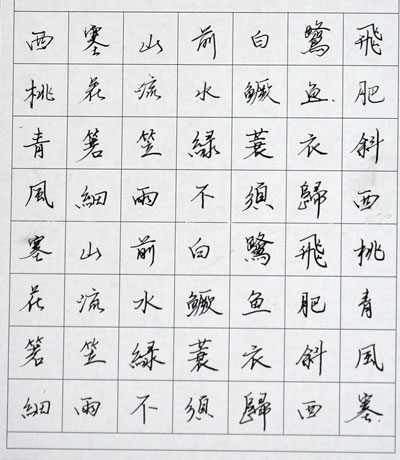 西塞山前白鷺飛
桃花流水鱖魚肥
青箬笠綠蓑衣斜
風細雨不須歸西
塞山前白鷺飛桃
花流水鱖魚肥青
箬笠綠蓑衣斜風
細雨不須歸西塞